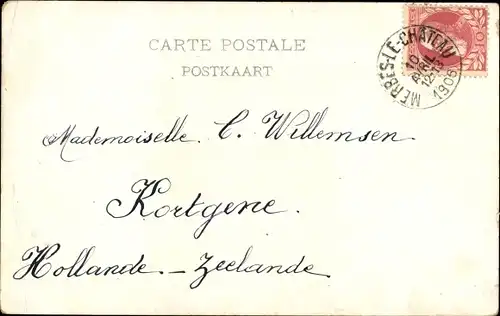 CARTE POSTALE
POSTKAART
MERBES-LE-CHÂTEAU
10
AVRIL
12-13
1905
10
Mademoiselle. C. Willemsen.
Kortgene.
Hollande. - Zeelande.